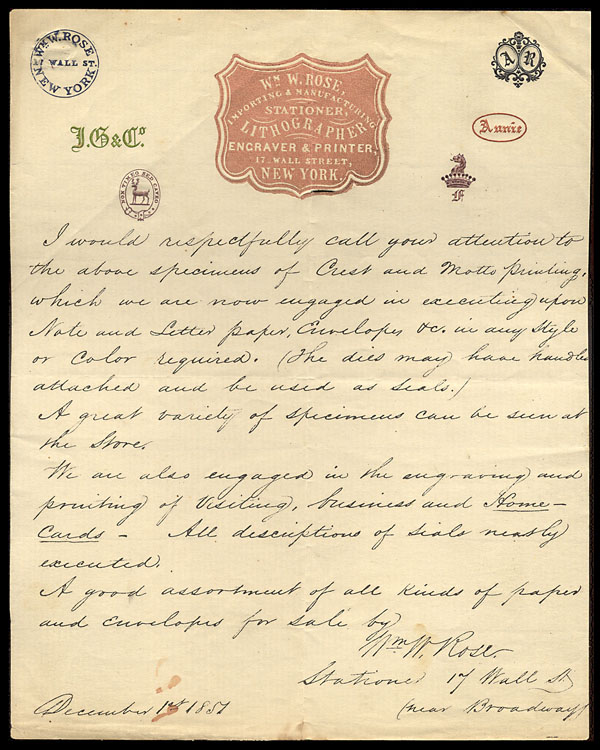 Wm W. ROSE
17 WALL ST.
NEW YORK.
J.G&Co.
NON TIMEO SED CAVEO
Wm W. ROSE,
IMPORTING & MANUFACTURING
STATIONER,
LITHOGRAPHER
ENGRAVER & PRINTER,
17. WALL STREET,
NEW YORK.
A R
Annie
I would respectfully call your attention to
the above specimens of Crest and Motto printing,
which we are now engaged in executing upon
Note and Letter paper, Envelopes &c. in any Style
or Color required. (The dies may have handles
attached and be used as seals.)
A great variety of specimens can be seen at
the Store.
We are also engaged in the engraving and
printing of Visiting, business and Home-
Cards - All descriptions of seals neatly
executed.
A good assortment of all kinds of paper
and envelopes for sale by
Wm W. Rose.
Stationer 17 Wall St
(near Broadway)
December 1st 1851